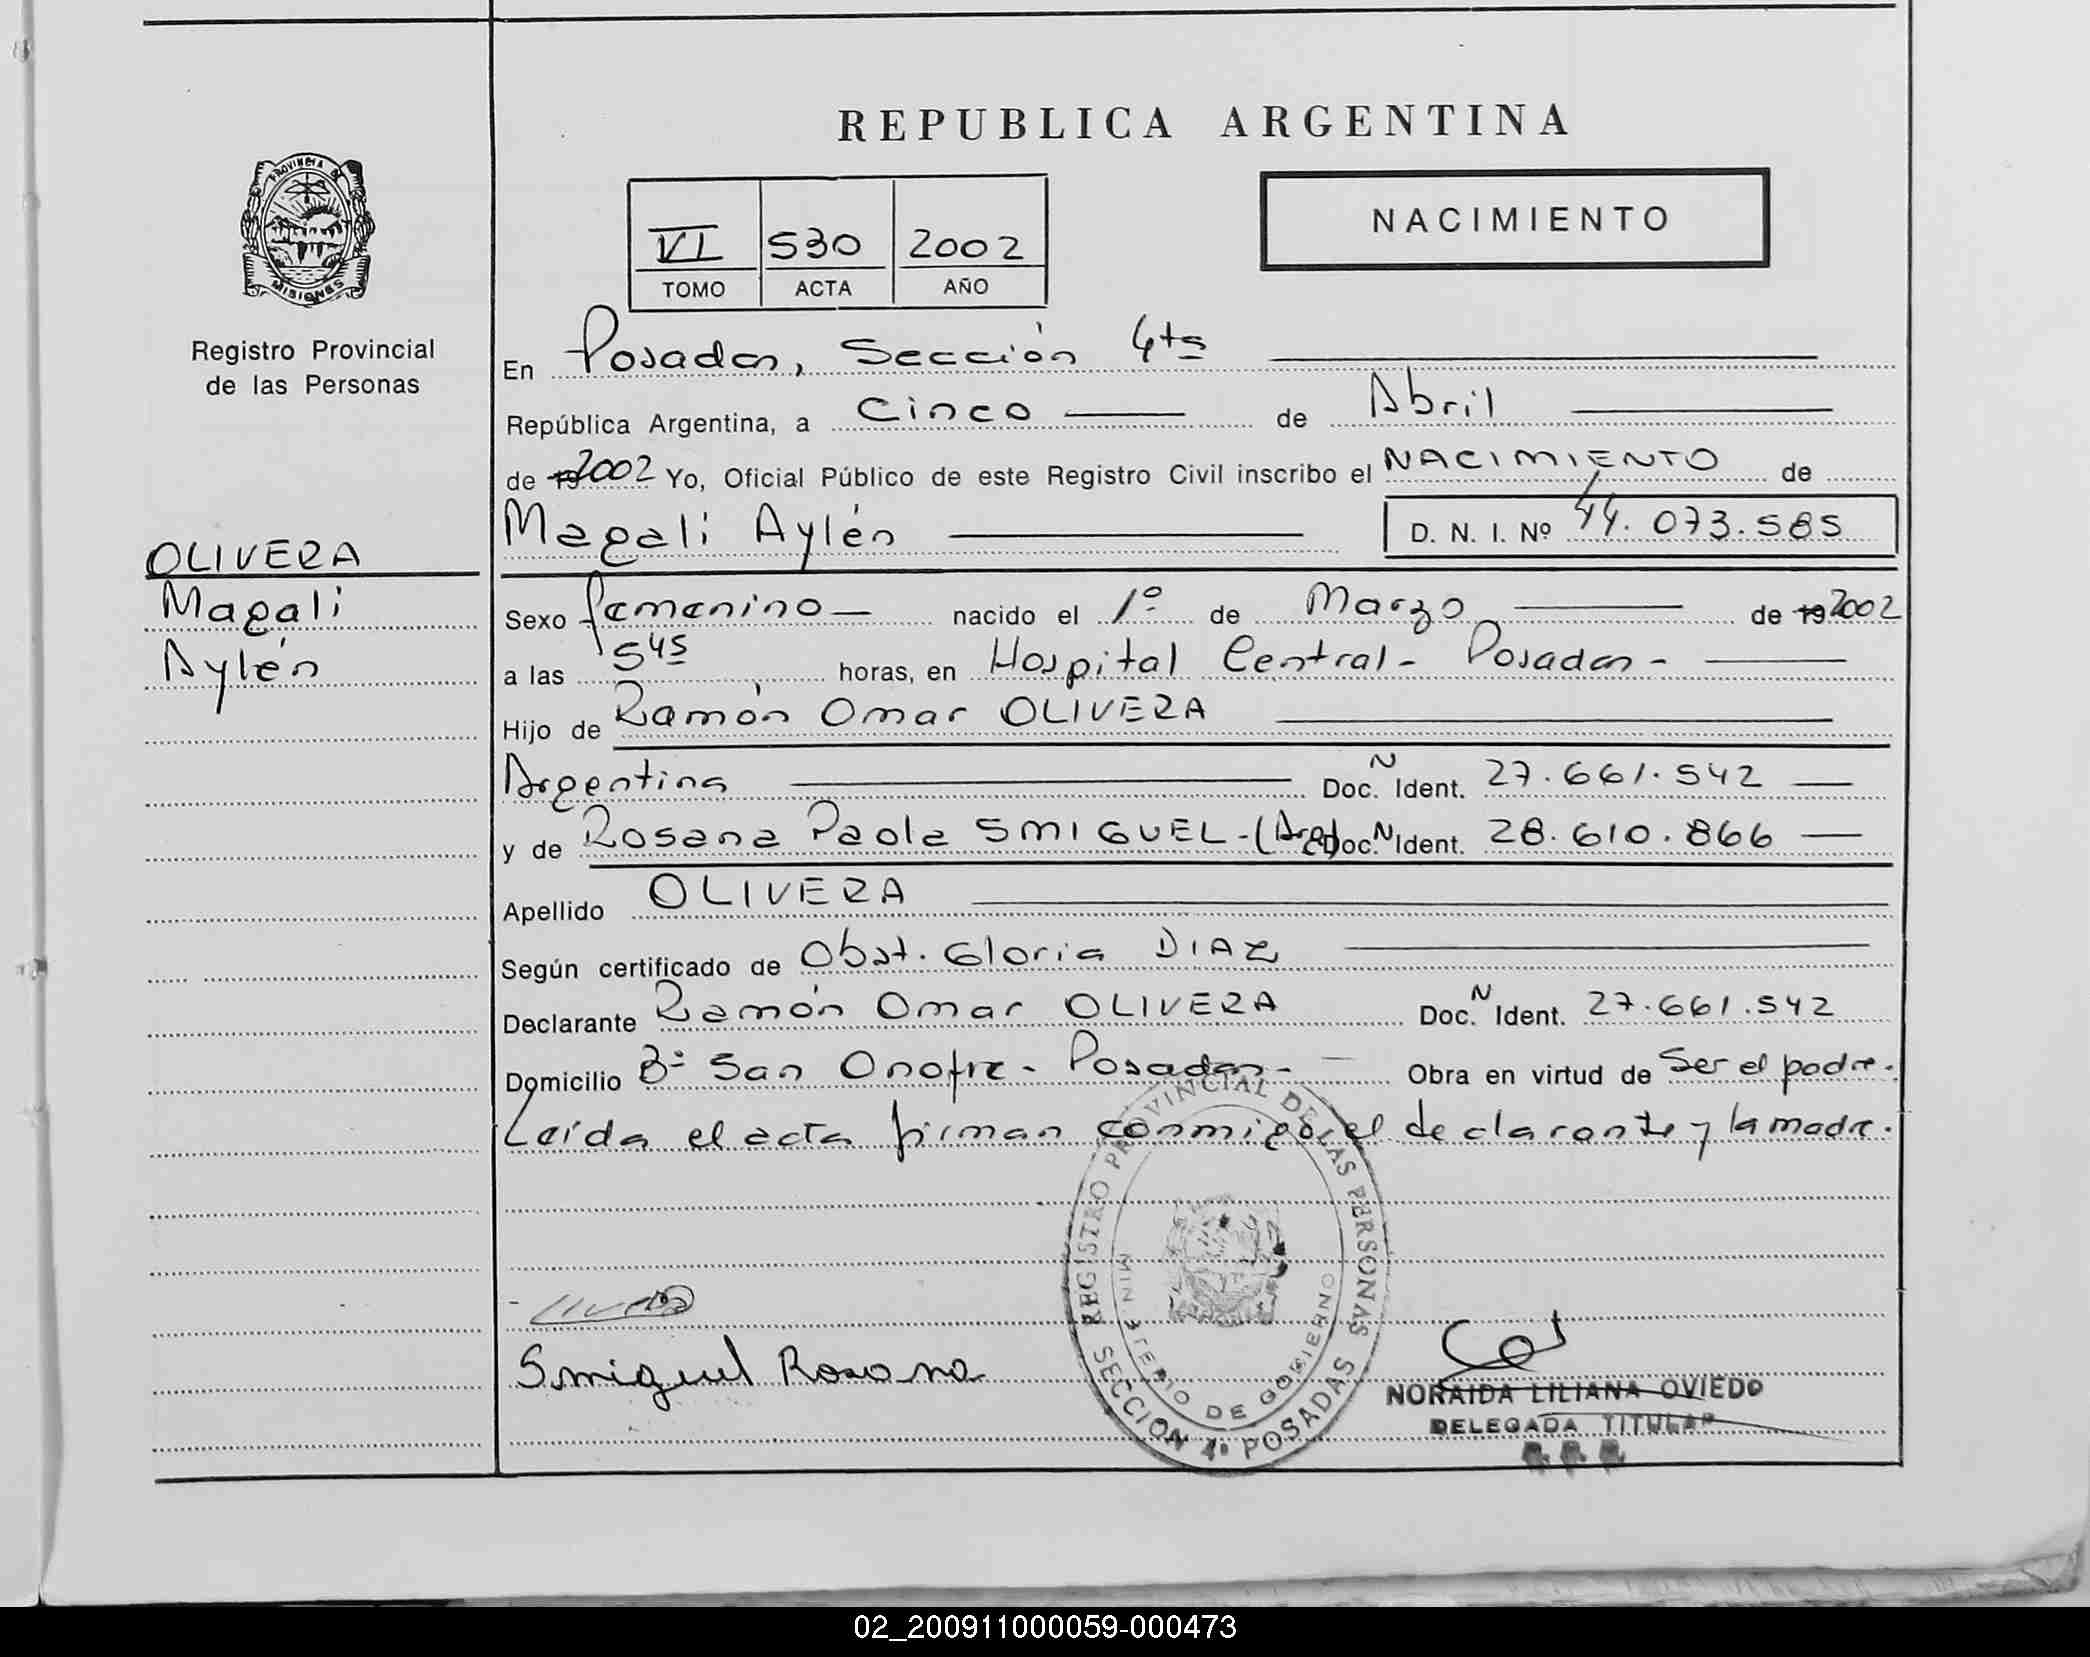 REPUBLICA ARGENTINA
PROVINCIA DE
MISIONES
Registro Provincial
de las Personas
VI 530 2002
TOMO ACTA AÑO
NACIMIENTO
En Posadas, Sección 4ta
República Argentina, a Cinco de Abril
de 192002 Yo, Oficial Público de este Registro Civil inscribo el NACIMIENTO de
Magali Aylén D. N. I. Nº 44.073.585
OLIVERA
Magali
Aylén
Sexo femenino nacido el 1º de Marzo de 192002
a las 5 45 horas, en Hospital Central - Posadas -
Hijo de Ramón Omar OLIVERA
Argentina Doc. N Ident. 27.661.542
y de Rosana Paola SMIGUEL - (Arg) Doc. N Ident. 28.610.866
Apellido OLIVERA
Según certificado de Obst. Gloria DIAZ
Declarante Ramón Omar OLIVERA Doc. N Ident. 27.661.542
Domicilio Bº San Onofre - Posadas - Obra en virtud de Ser el padre.
Leída el acta firman conmigo el declarante y la madre.
REGISTRO PROVINCIAL DE LAS PERSONAS
MINISTERIO DE GOBIERNO
SECCION 4ª POSADAS
Smiguel Rosana
NORAIDA LILIANA OVIEDO
DELEGADA TITULAR
02_200911000059-000473